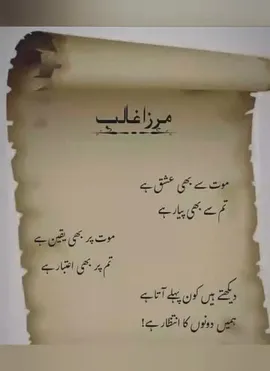 مرزا غالب
موت سے بھی عشق ہے
تم سے بھی پیار ہے
موت پر بھی یقین ہے
تم پر بھی اعتبار ہے
دیکھتے ہیں کون پہلے آتا ہے
ہمیں دونوں کا انتظار ہے!